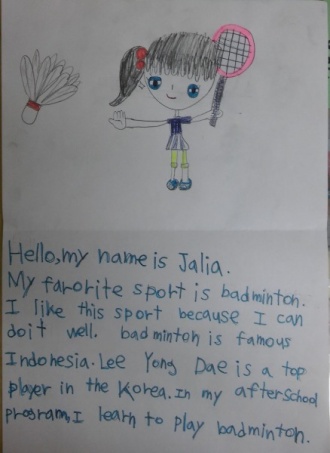 Hello, my name is Jalia.
My farorite sport is badminton.
I like this sport because I can
do it well. badminton is famous
Indonesia. Lee Yong Dae is a top
player in the Korea. In my afterschool
program, I learn to play badminton.